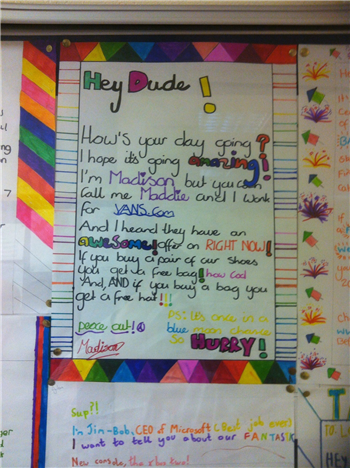 Hey Dude!
How's your day going?
I hope it's going amazing!
I'm Madison but you can
call me Maddie and I work
for VANS.com
And I heard they have an
awesome! offer on RIGHT NOW!
If you buy a pair of our shoes
you get a free bag! how cool
And, AND if you buy a bag you
get a free hat!!!
P.S: it's once in a
blue moon chance
so HURRY!
peace out!
Madison
Sup?!
I'm Jim-Bob, CEO of Microsoft (Best job ever)
I want to tell you about our FANTASTIC
New console, the